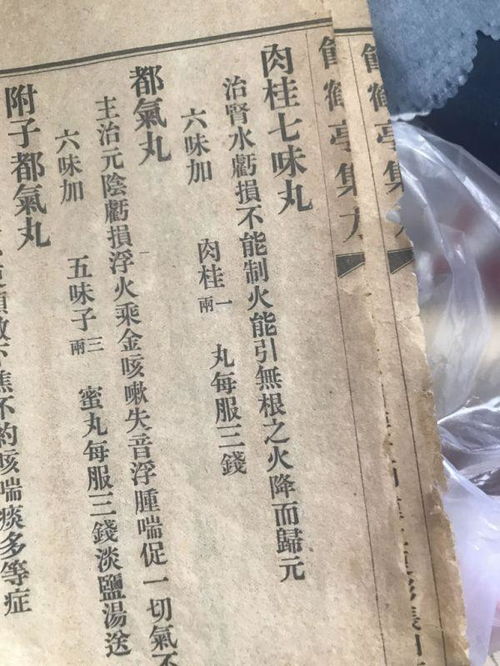 飼鶴亭集
飼鶴亭集方
肉桂七味丸
治腎水虧損不能制火能引無根之火降而歸元
六味加　肉桂一兩　丸每服三錢
都氣丸
主治元陰虧損浮火乘金咳嗽失音浮腫喘促一切氣不
六味加　五味子三兩　蜜丸每服三錢淡鹽湯送
附子都氣丸
下焦不約咳喘痰多等症